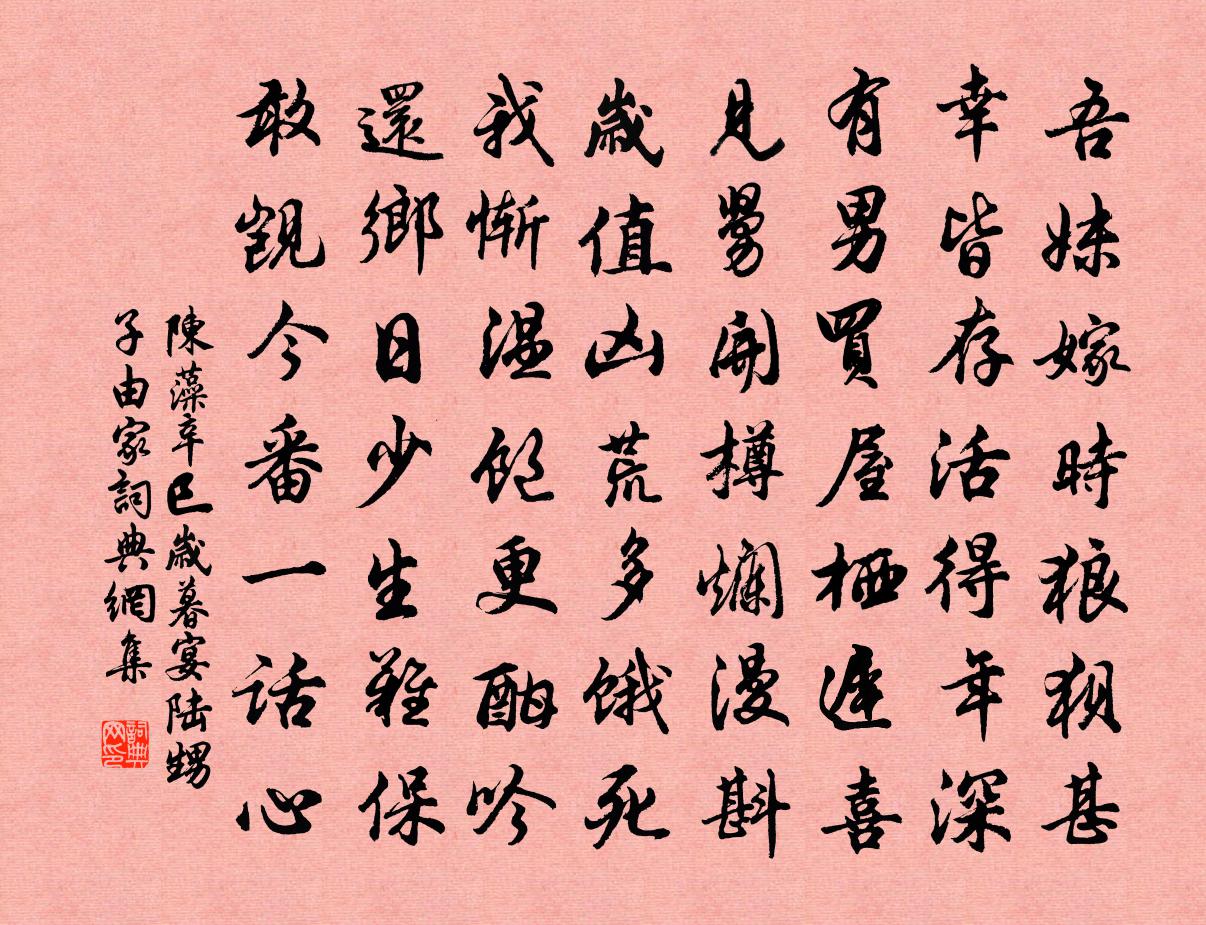 吾妹嫁時狼狽甚
幸皆存活得年深
有男買屋栖遲喜
見舅開樽爛漫斟
歲值凶荒多餓死
我慚温飽更酣吟
還鄉日少生難保
敢覬今番一話心
陳藻辛巳歲暮宴陸甥
子由家詞典網集
詞典网印